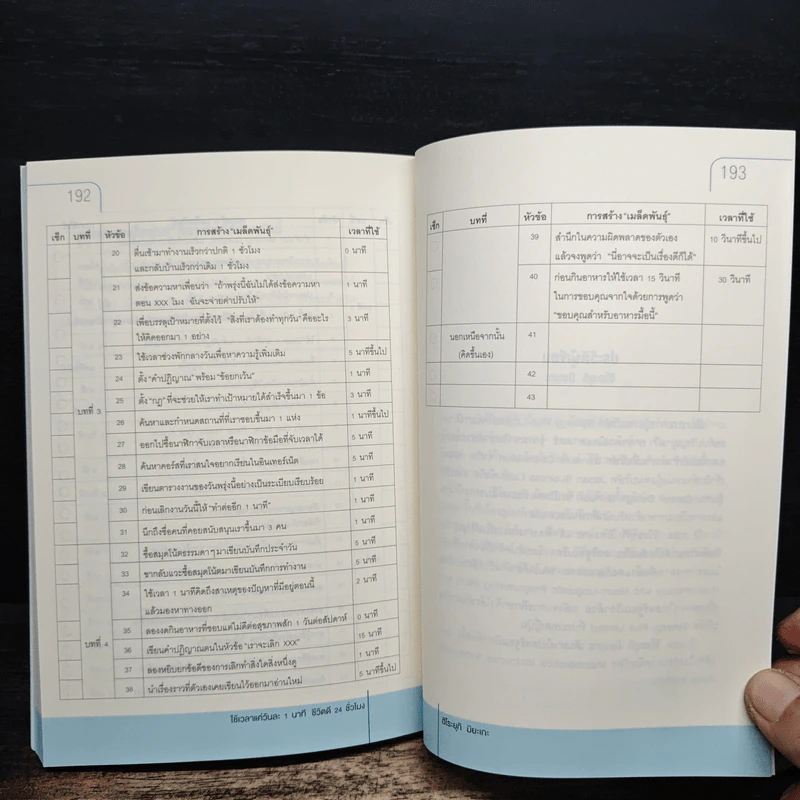 192
เช็ก บทที่ หัวข้อ การสร้าง "เมล็ดพันธุ์" เวลาที่ใช้
20 ตื่นเช้ามาทำงานเร็วกว่าปกติ 1 ชั่วโมง 0 นาที
และกลับบ้านเร็วกว่าเดิม 1 ชั่วโมง
21 ส่งข้อความหาเพื่อนว่า "ถ้าพรุ่งนี้ฉันไม่ได้ส่งข้อความหา 1 นาที
ตอน XXX โมง ฉันจะจ่ายค่าปรับให้"
22 เพื่อบรรลุเป้าหมายที่ตั้งไว้ "สิ่งที่เราต้องทำทุกวัน" คืออะไร 3 นาที
ให้คิดออกมา 1 อย่าง
23 ใช้เวลาช่วงพักกลางวันเพื่อหาความรู้เพิ่มเติม 5 นาทีขึ้นไป
24 ตั้ง "คำปฏิญาณ" พร้อม "ข้อยกเว้น" 1 นาที
บทที่ 3 25 ตั้ง "กฎ" ที่จะช่วยให้เราทำเป้าหมายได้สำเร็จขึ้นมา 1 ข้อ 3 นาที
26 ค้นหาและกำหนดสถานที่ที่เราชอบขึ้นมา 1 แห่ง 1 นาทีขึ้นไป
27 ออกไปซื้อนาฬิกาจับเวลาหรือนาฬิกาข้อมือที่จับเวลาได้ 5 นาที
28 ค้นหาคอร์สที่เราสนใจอยากเรียนในอินเทอร์เน็ต 5 นาที
29 เขียนตารางงานของวันพรุ่งนี้อย่างเป็นระเบียบเรียบร้อย 1 นาที
30 ก่อนเลิกงานวันนี้ให้ "ทำต่ออีก 1 นาที" 1 นาที
31 นึกถึงชื่อคนที่คอยสนับสนุนเราขึ้นมา 3 คน 1 นาที
32 ซื้อสมุดโน้ตธรรมดาๆ มาเขียนบันทึกประจำวัน 5 นาที
33 ขากลับแวะซื้อสมุดโน้ตมาเขียนบันทึกการทำงาน 5 นาที
34 ใช้เวลา 1 นาทีคิดถึงสาเหตุของปัญหาที่มีอยู่ตอนนี้ 2 นาที
แล้วมองหาทางออก
35 ลองงดกินอาหารที่ชอบแต่ไม่ดีต่อสุขภาพสัก 1 วันต่อสัปดาห์ 0 นาที
บทที่ 4 36 เขียนคำปฏิญาณตนในหัวข้อ "เราจะเลิก XXX" 15 นาที
37 ลองหยิบยกข้อดีของการเลิกทำสิ่งใดสิ่งหนึ่งดู 1 นาที
38 นำเรื่องราวที่ตัวเองเคยเขียนไว้ออกมาอ่านใหม่ 5 นาทีขึ้นไป
ใช้เวลาแค่วันละ 1 นาที ชีวิตดี 24 ชั่วโมง
193
เช็ก บทที่ หัวข้อ การสร้าง "เมล็ดพันธุ์" เวลาที่ใช้
39 สำนึกในความผิดพลาดของตัวเอง 10 วินาทีขึ้นไป
แล้วจงพูดว่า "นี่อาจจะเป็นเรื่องดีก็ได้"
40 ก่อนกินอาหารให้ใช้เวลา 15 วินาที 30 วินาที
ในการขอบคุณจากใจด้วยการพูดว่า
"ขอบคุณสำหรับอาหารมื้อนี้"
นอกเหนือจากนั้น 41
(คิดขึ้นเอง)
42
43
ชิโระยุกิ มิยะเกะ